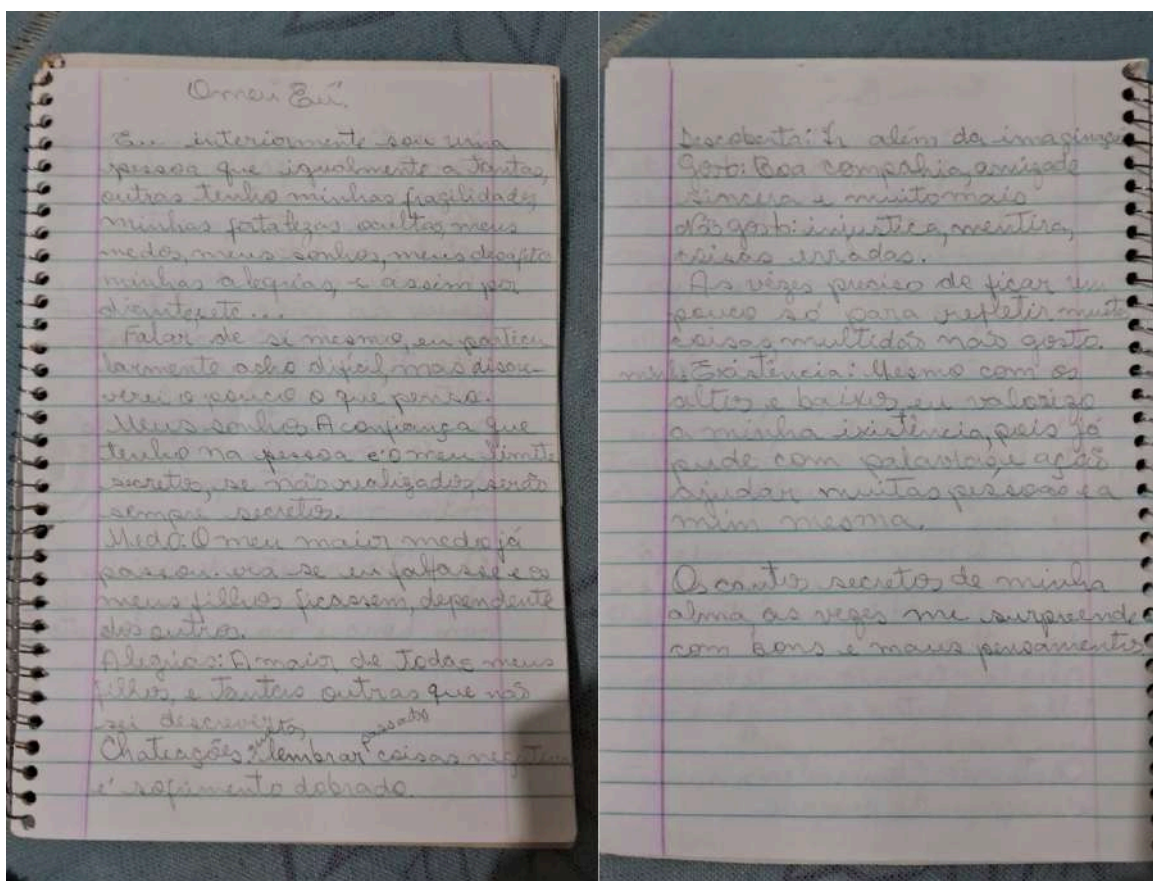 O meu Eu.
Eu interiormente sou uma
pessoa que igualmente a tantas,
outras tenho minhas fragilidades,
minhas fortalezas ocultas, meus
medos, meus sonhos, meus desafetos
minhas alegrias, e assim por
diante, etc...
Falar de si mesmo, eu particu
larmente acho difícil, mas descre-
verei o pouco o que penso.
Meus sonhos A confiança que
tenho na pessoa é o meu limite
secretos, se não realizados, serão
sempre secretos.
Medo: O meu maior medo já
passou. era se eu faltasse e os
meus filhos ficassem, dependente
dos outros.
Alegrias: A maior de Todas meus
filhos, e tantas outras que não
sei descrever
passado
Chateações: lembrar coisas negativas
é sofrimento dobrado.
Descoberta: Ir além da imaginação
Gosto: Boa companhia, amizade
sincera e muito mais
Não gosto: injustiça, mentira,
coisas erradas.
As vezes preciso de ficar um
pouco só para refletir muitas
coisas multidão não gosto.
minha Existência: Mesmo com os
altos e baixos, eu valorizo
a minha existência, pois já
pude com palavras, e ação
ajudar muitas pessoas e a
mim mesma.
Os cantos secretos de minha
alma as vezes me surpreende
com bons e maus pensamentos